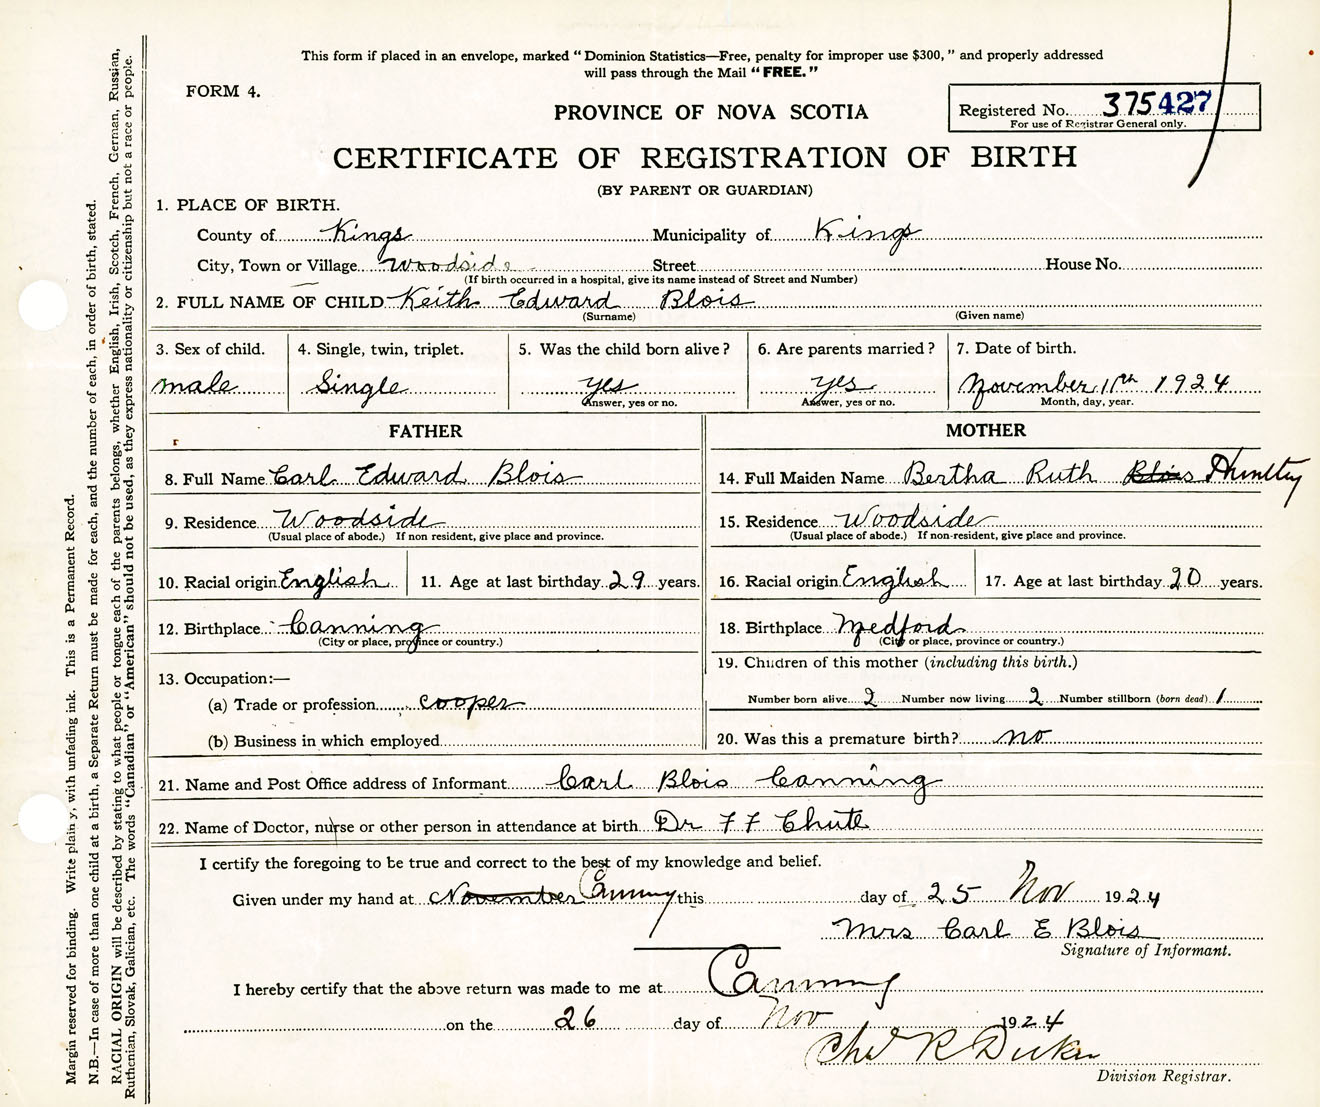 This form if placed in an envelope, marked "Dominion Statistics—Free, penalty for improper use $300," and properly addressed
will pass through the Mail "FREE."
FORM 4.
PROVINCE OF NOVA SCOTIA
Registered No. 375427
For use of Registrar General only.
CERTIFICATE OF REGISTRATION OF BIRTH
(BY PARENT OR GUARDIAN)
1. PLACE OF BIRTH.
County of Kings Municipality of Kings
City, Town or Village Woodside Street House No.
(If birth occurred in a hospital, give its name instead of Street and Number)
2. FULL NAME OF CHILD Keith Edward Blois
(Surname) (Given name)
3. Sex of child. 4. Single, twin, triplet. 5. Was the child born alive? 6. Are parents married? 7. Date of birth.
male Single yes yes November 11th 1924
Answer, yes or no. Answer, yes or no. Month, day, year.
FATHER MOTHER
8. Full Name Carl Edward Blois 14. Full Maiden Name Bertha Ruth Blois
9. Residence Woodside 15. Residence Woodside
(Usual place of abode.) If non resident, give place and province. (Usual place of abode.) If non-resident, give place and province.
10. Racial origin English 11. Age at last birthday 29 years. 16. Racial origin English 17. Age at last birthday 20 years.
12. Birthplace Canning 18. Birthplace Medford
(City or place, province or country.) (City or place, province or country.)
13. Occupation:— 19. Children of this mother (including this birth.)
(a) Trade or profession cooper Number born alive 2 Number now living 2 Number stillborn (born dead) 1
(b) Business in which employed 20. Was this a premature birth? no
21. Name and Post Office address of Informant Carl Blois Canning
22. Name of Doctor, nurse or other person in attendance at birth Dr F F Chute
I certify the foregoing to be true and correct to the best of my knowledge and belief.
Given under my hand at November Canning this day of 25 Nov 1924
Mrs Carl E Blois
Signature of Informant.
I hereby certify that the above return was made to me at Canning
on the 26 day of Nov 1924
R
Division Registrar.
Margin reserved for binding. Write plainly, with unfading ink. This is a Permanent Record.
N.B.—In case of more than one child at a birth, a Separate Return must be made for each, and the number of each, in order of birth, stated.
RACIAL ORIGIN will be described by stating to what people or tongue each of the parents belongs, whether English, Irish, Scotch, French, German, Russian,
Ruthenian, Slovak, Galician, etc. The words "Canadian" or "American" should not be used, as they express nationality or citizenship but not a race or people.